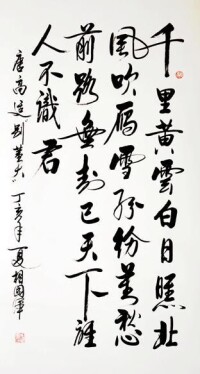 千里黄雲白日曛北
風吹雁雪紛紛莫愁
前路無知己天下誰
人不識君
唐高适别董大 丁亥年夏